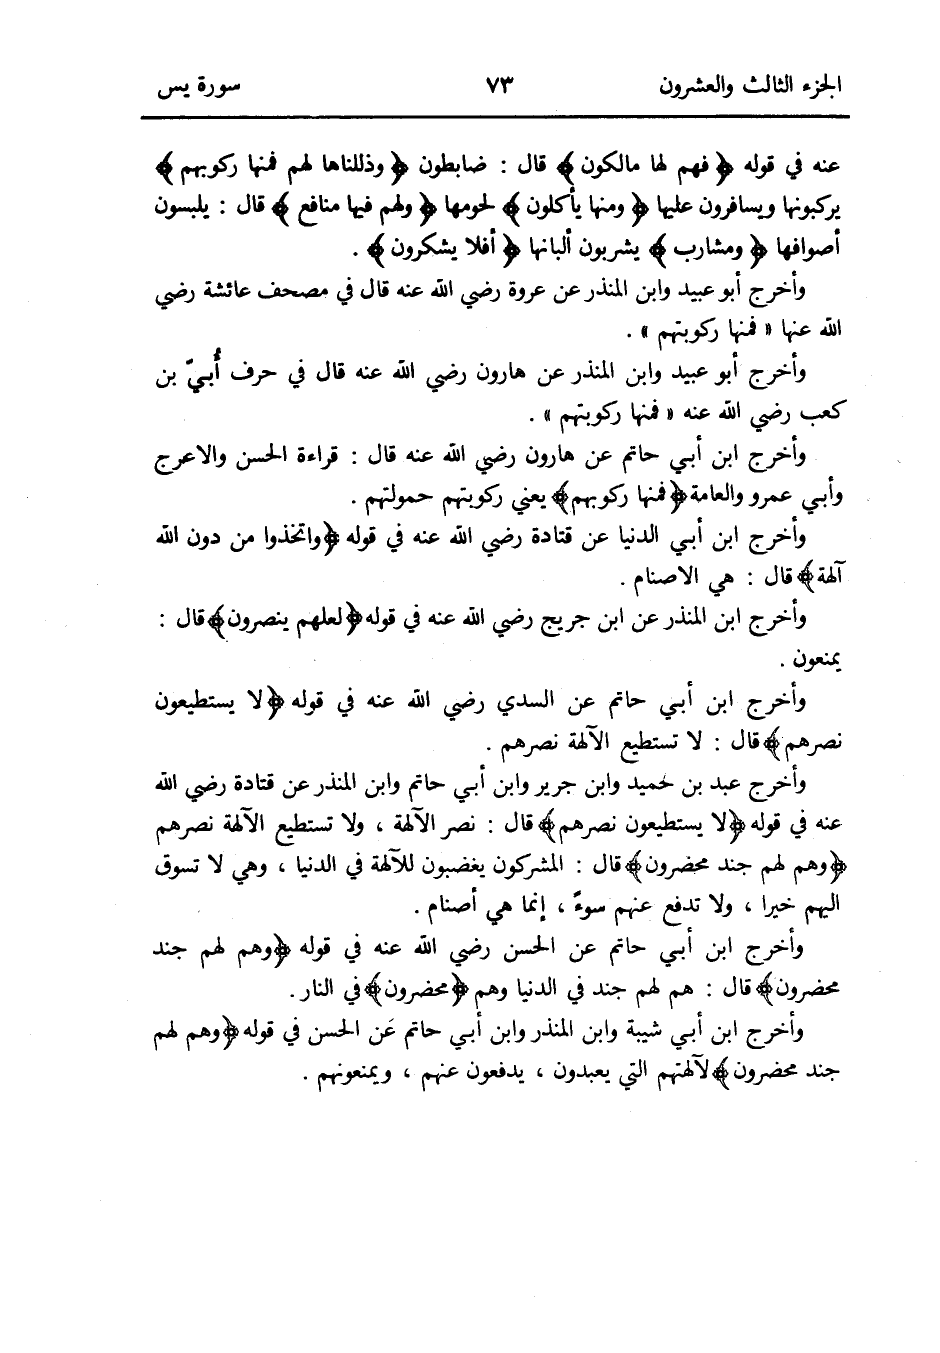 الجزء الثالث والعشرون ٧٣ سورة يس
عنه في قوله ﴿ فهم لها مالكون ﴾ قال : ضابطون ﴿ وذللناها لهم فمنها ركوبهم ﴾
يركبونها ويسافرون عليها ﴿ ومنها يأكلون ﴾ لحومها ﴿ ولهم فيها منافع ﴾ قال : يلبسون
أصوافها ﴿ ومشارب ﴾ يشربون ألبانها ﴿ أفلا يشكرون ﴾ .
وأخرج أبو عبيد وابن المنذر عن عروة رضي الله عنه قال في مصحف عائشة رضي
الله عنها « فمنها ركوبتهم » .
وأخرج أبو عبيد وابن المنذر عن هارون رضي الله عنه قال في حرف أُبيّ بن
كعب رضي الله عنه « فمنها ركوبتهم » .
وأخرج ابن أبي حاتم عن هارون رضي الله عنه قال : قراءة الحسن والاعرج
وأبي عمرو والعامة ﴿فمنها ركوبهم﴾ يعني ركوبتهم حمولتهم .
وأخرج ابن أبي الدنيا عن قتادة رضي الله عنه في قوله ﴿واتخذوا من دون الله
آلهة﴾ قال : هي الاصنام .
وأخرج ابن المنذر عن ابن جريج رضي الله عنه في قوله ﴿لعلهم ينصرون﴾ قال :
يمنعون .
وأخرج ابن أبي حاتم عن السدي رضي الله عنه في قوله ﴿لا يستطيعون
نصرهم﴾ قال : لا تستطيع الآلهة نصرهم .
وأخرج عبد بن حميد وابن جرير وابن أبي حاتم وابن المنذر عن قتادة رضي الله
عنه في قوله ﴿لا يستطيعون نصرهم﴾ قال : نصر الآلهة ، ولا تستطيع الآلهة نصرهم
﴿وهم لهم جند محضرون﴾ قال : المشركون يغضبون للآلهة في الدنيا ، وهي لا تسوق
اليهم خيرا ، ولا تدفع عنهم سوءً ، إنما هي أصنام .
وأخرج ابن أبي حاتم عن الحسن رضي الله عنه في قوله ﴿وهم لهم جند
محضرون﴾ قال : هم لهم جند في الدنيا وهم ﴿محضرون﴾ في النار .
وأخرج ابن أبي شيبة وابن المنذر وابن أبي حاتم عَن الحسن في قوله ﴿وهم لهم
جند محضرون﴾ لآلهتهم التي يعبدون ، يدفعون عنهم ، ويمنعونهم .